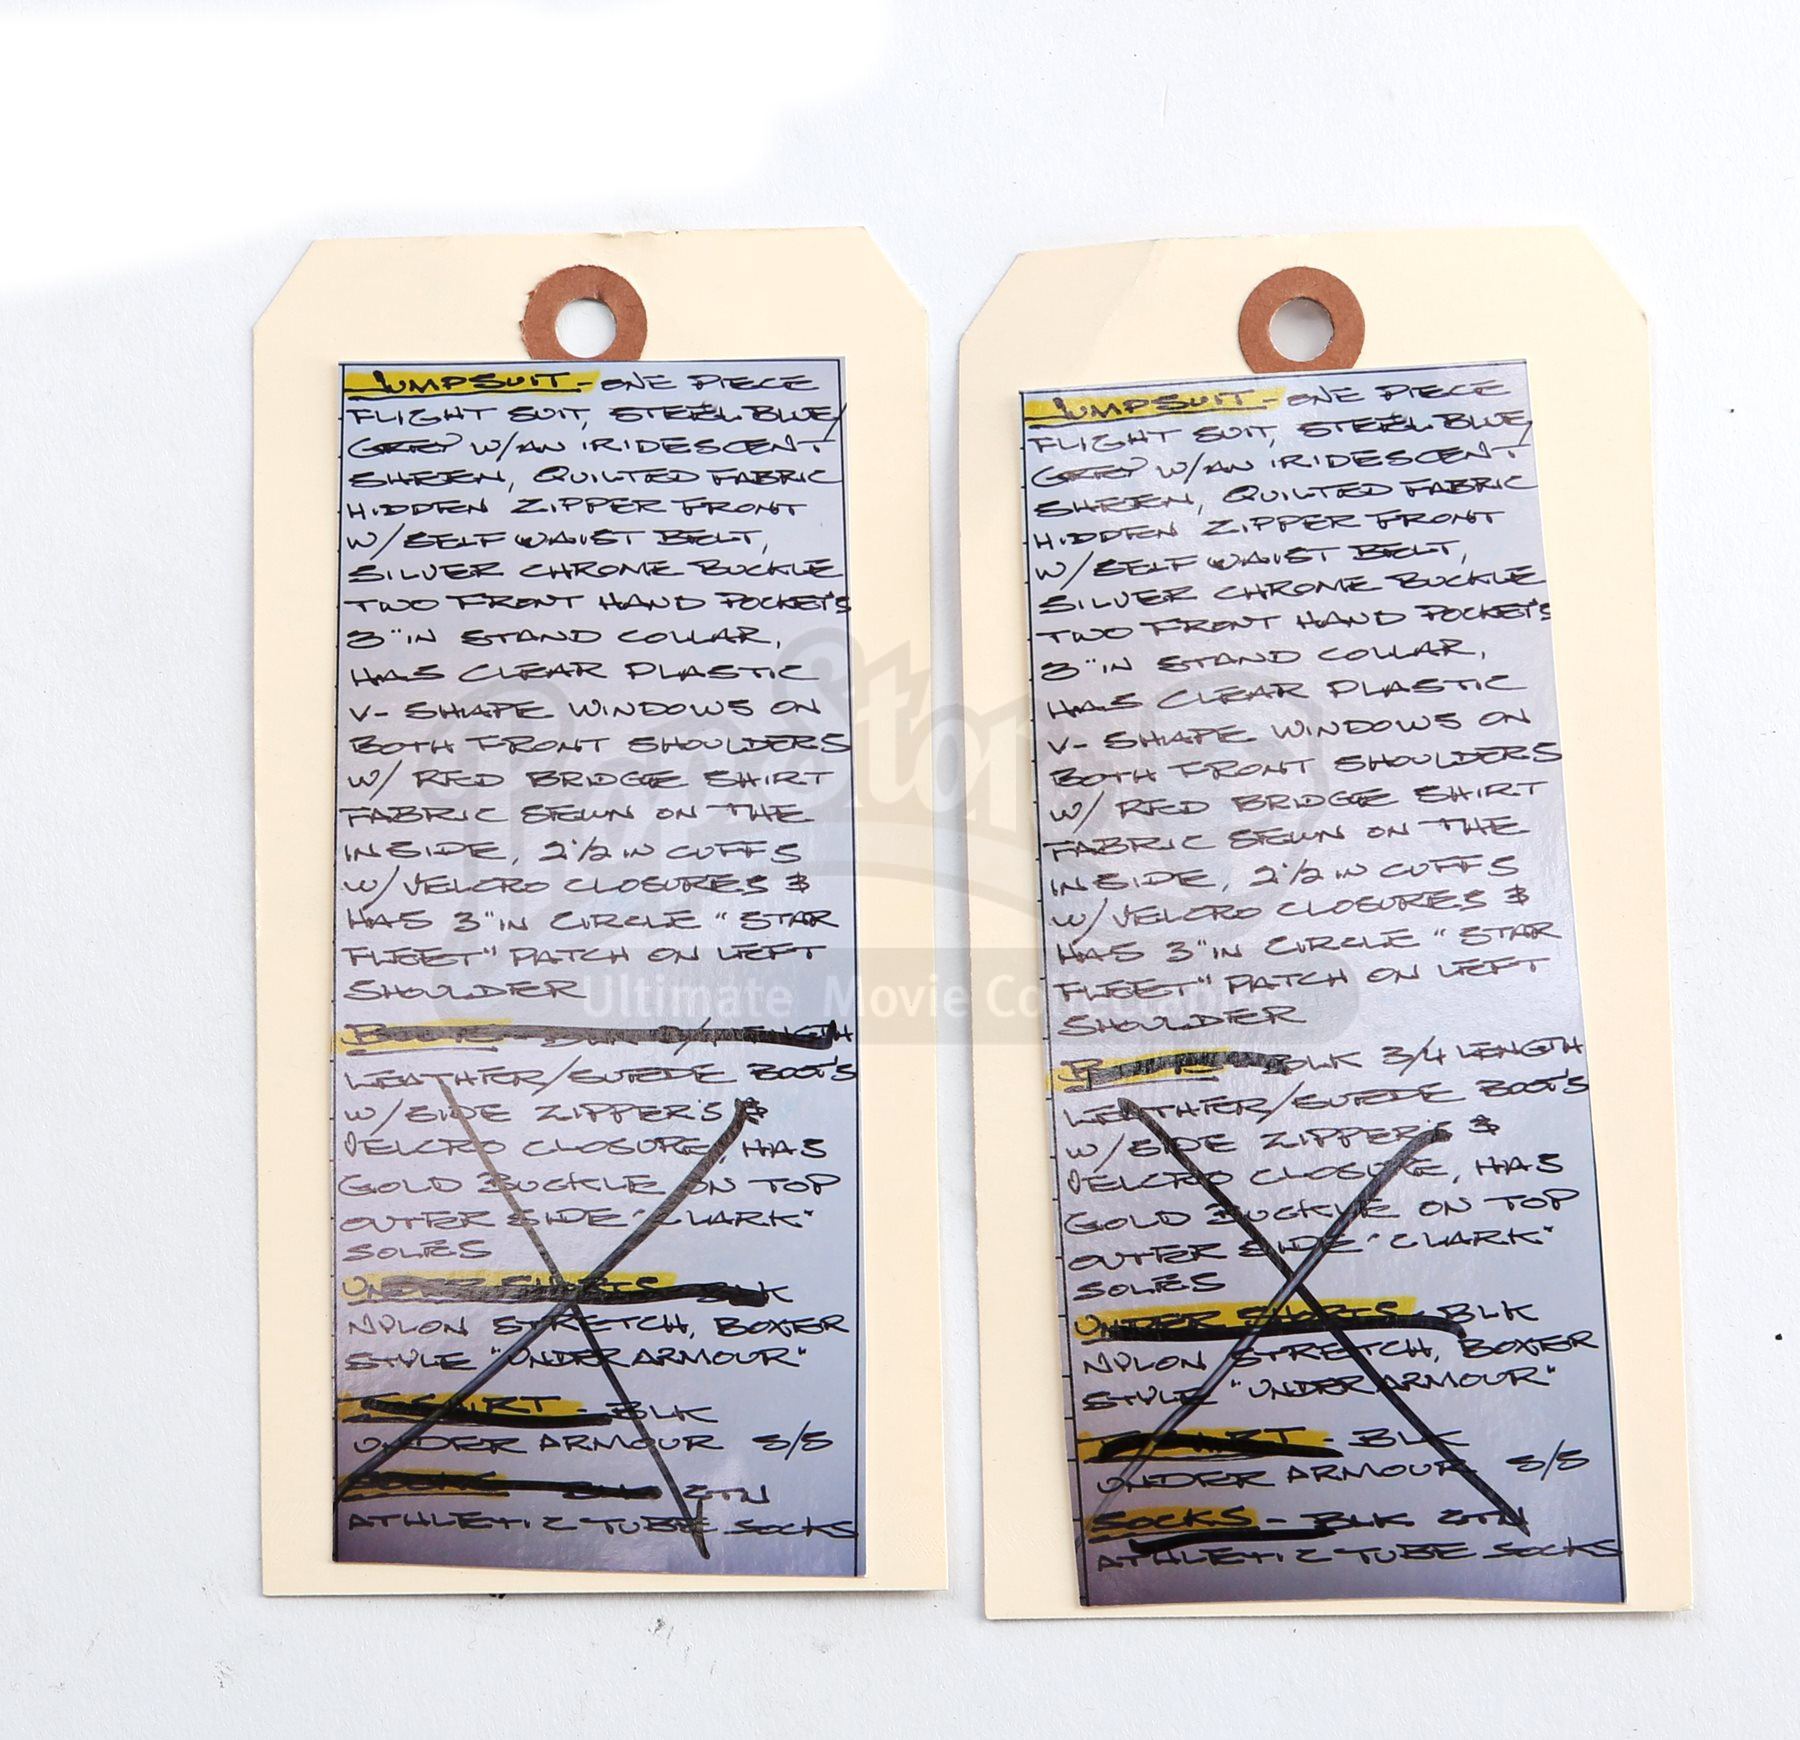 JUMPSUIT - ONE PIECE
FLIGHT SUIT, STEEL BLUE/
GREY W/AN IRIDESCENT
SHEEN, QUILTED FABRIC
HIDDEN ZIPPER FRONT
W/SELF WAIST BELT,
SILVER CHROME BUCKLE
TWO FRONT HAND POCKET'S
3"IN STAND COLLAR,
HAS CLEAR PLASTIC
V- SHAPE WINDOWS ON
BOTH FRONT SHOULDERS
W/ RED BRIDGE SHIRT
FABRIC SEWN ON THE
INSIDE, 2 1/2 IN CUFFS
W/VELCRO CLOSURES &
HAS 3"IN CIRCLE "STAR
FLEET" PATCH ON LEFT
SHOULDER
BOOTS - BLK 3/4 LENGTH
LEATHER/SUEDE BOOT'S
W/SIDE ZIPPER'S &
VELCRO CLOSURE, HAS
GOLD BUCKLE ON TOP
OUTER SIDE "CLARK"
SOLES
UNDER SHORTS - BLK
NYLON STRETCH, BOXER
STYLE "UNDER ARMOUR"
T-SHIRT - BLK
UNDER ARMOUR S/S
SOCKS - BLK GTN
ATHLETIC TUBE SOCKS
JUMPSUIT - ONE PIECE
FLIGHT SUIT, STEEL BLUE/
GREY W/AN IRIDESCENT
SHEEN, QUILTED FABRIC
HIDDEN ZIPPER FRONT
W/SELF WAIST BELT,
SILVER CHROME BUCKLE
TWO FRONT HAND POCKET'S
3"IN STAND COLLAR,
HAS CLEAR PLASTIC
V- SHAPE WINDOWS ON
BOTH FRONT SHOULDERS
W/ RED BRIDGE SHIRT
FABRIC SEWN ON THE
INSIDE, 2 1/2 IN CUFFS
W/VELCRO CLOSURES &
HAS 3"IN CIRCLE "STAR
FLEET" PATCH ON LEFT
SHOULDER
BOOTS - BLK 3/4 LENGTH
LEATHER/SUEDE BOOT'S
W/SIDE ZIPPER'S &
VELCRO CLOSURE, HAS
GOLD BUCKLE ON TOP
OUTER SIDE "CLARK"
SOLES
UNDER SHORTS - BLK
NYLON STRETCH, BOXER
STYLE "UNDER ARMOUR"
T-SHIRT - BLK
UNDER ARMOUR S/S
SOCKS - BLK GTN
ATHLETIC TUBE SOCKS
PropStore
Ultimate Movie Collectables